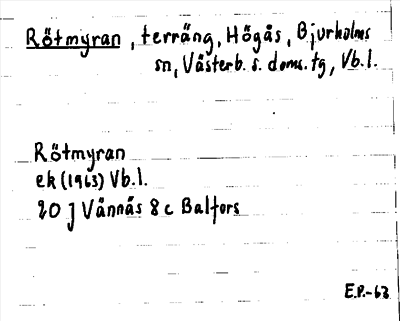 Rötmyran, terräng, Högås, Bjurholms
sn, Västerb. s. doms. tg, Vb. l.
Rötmyran
ek (1963) Vb. l.
20 J Vännäs 8 c Balfors
E.P.-63